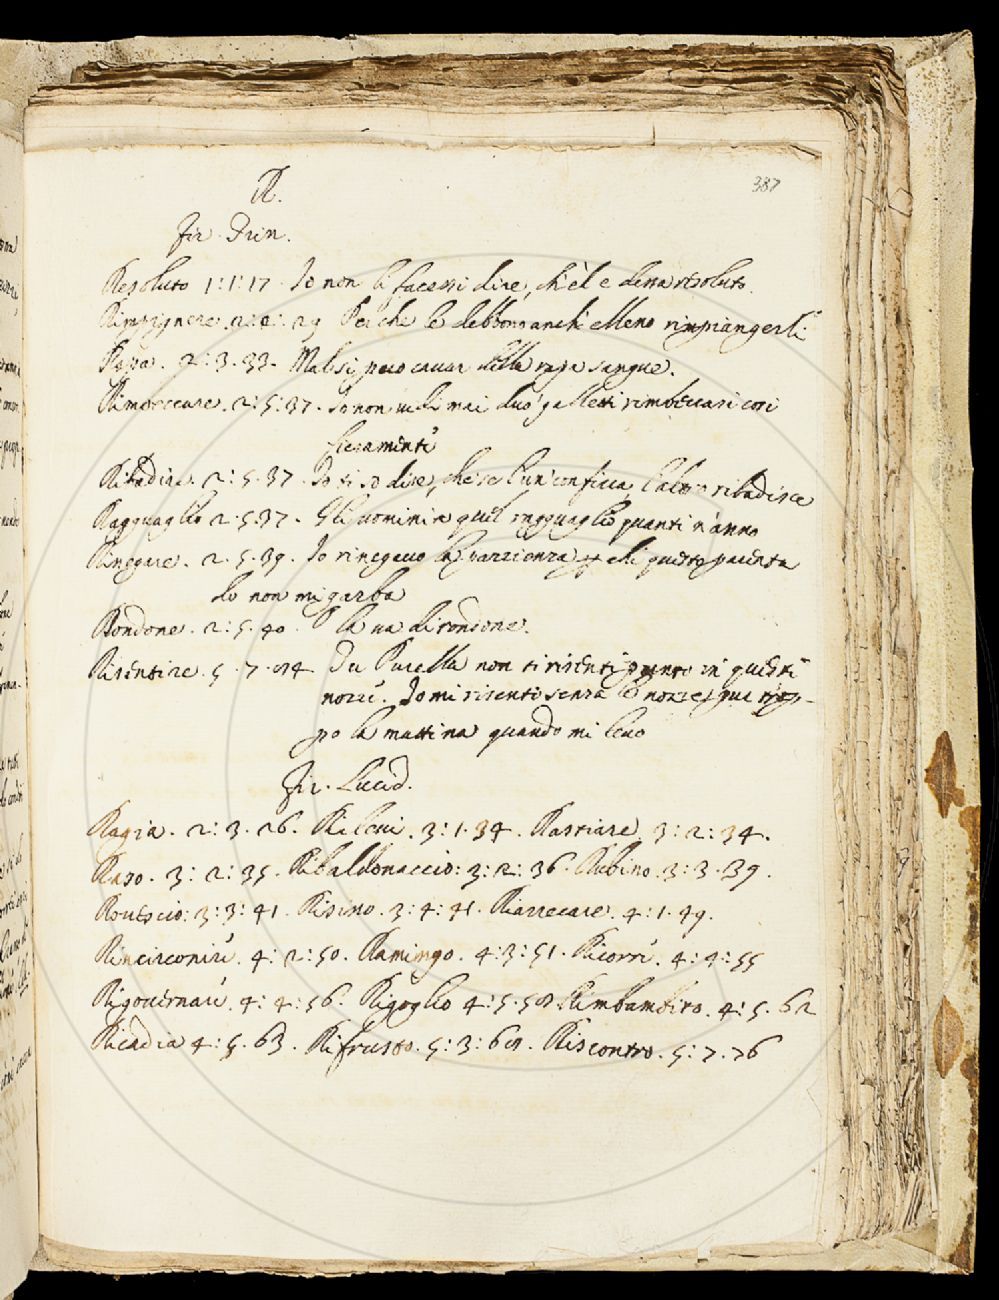 R.
387
Fir. Trin.
Resoluto 1:1:17. Io non le facessi dire, ch'el e dessa resoluto.
Rimpignere. 2:2:29 Perche le debbono anch'elleno rimpiangerli
Rapa. 2:3.33. Malsi puo cavar della rapa sangue.
Rimbeccare. 2:5:37. Io non vidi mai duo galletti rimbeccarsi cosi
fieramente
Ribadire. 2:5.37. Io ti so dire, che se l'un conficca, l'altro ribadisce
Ragguaglio 2.5.37. Gli uomini a quel ragguaglio quanti n'anno
Rinegare. 2.5.39. Io rinegavo la pazzienza
do non mi garba
Rondone. 2:5.40. la va di rondone.
Risentire. 5.7.74 Du Pucella non ti risenti punto in questi
nozze. Io mi risento senza le nozze, pur
po la mattina quando mi levo
Fir. Lucid.
Ragia. 2:3.26. 3:1.34. 3:2:34.
Raso. 3:2:35. Ribaldonaccio: 3:2:36. Rubino. 3:3.39.
Rovescio: 3:3:41. 3:4:41. Riarrecare. 4:1.49.
4:2:50. Ramingo. 4:3:51. 4:4:55
4:4:56. Rigoglio 4:5.58 Rimbambito. 4:5.62
Ricadia 4:5.63. Rifrusto. 5:3:68. Riscontro. 5:7.76